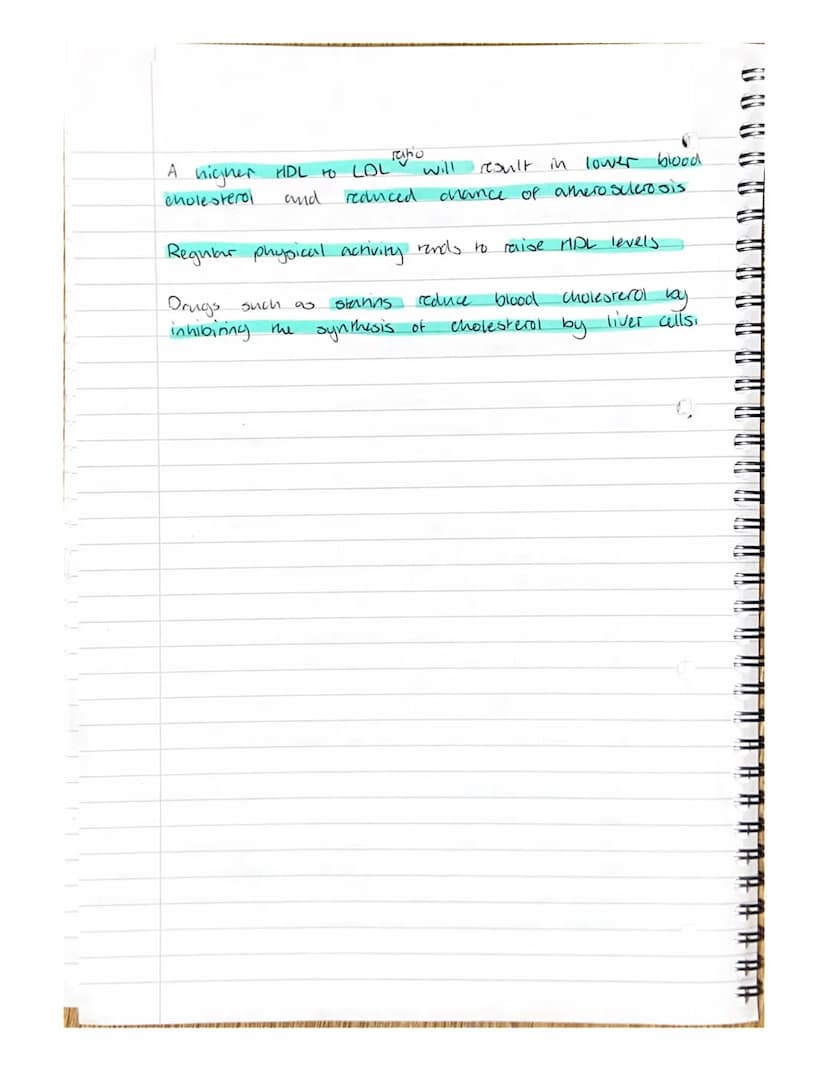 A higher HDL to LDL ratio will result in lower blood
cholesterol and reduced chance of atherosclerosis
Regular physical activity tends to raise HDL levels
Drugs such as statins reduce blood cholesterol by
inhibiting the synthesis of cholesterol by liver cells.